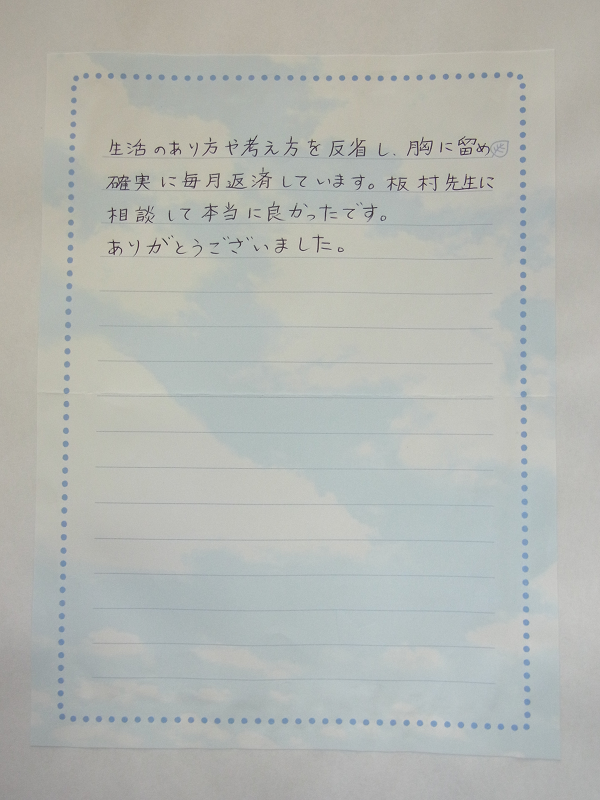 生活のあり方や考え方を反省し、胸に留め
確実に毎月返済しています。板村先生に
相談して本当に良かったです。
ありがとうございました。